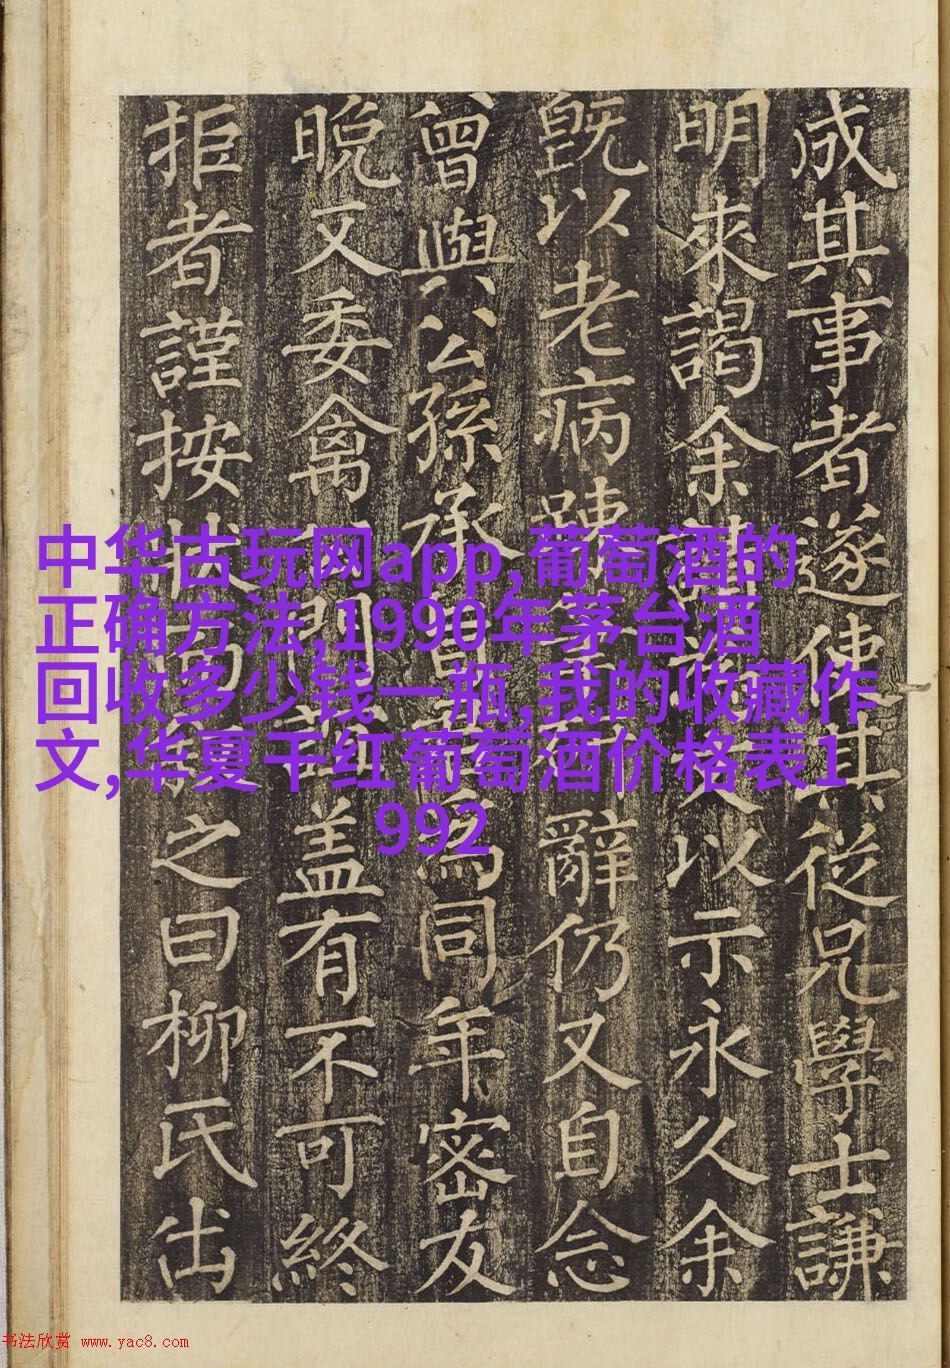 成其事者遂使其從兄學士謙
明來謁余以示永久余
既以老病踈辭仍又自念
曾與公孫承為同年密友
晚又委禽門盖有不可終
拒者謹按狀之曰柳氏出
中华古玩网app,葡萄酒的
正确方法,1990年茅台酒
回收多少钱一瓶,我的收藏作
文,华夏干红葡萄酒价格表1
992
书法欣赏 www.yac8.com